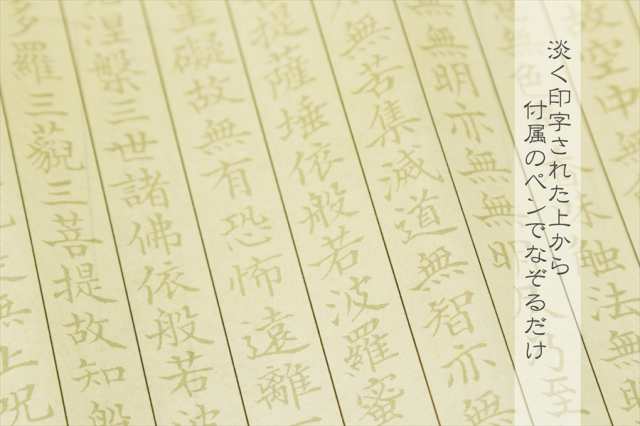 淡く印字された上から
付属のペンでなぞるだけ
故空中無
無色
触法無
無明亦無無明
乃至
無苦集滅道無智亦無
提薩埵依般若波羅蜜
罣礙故無有恐怖遠離
涅槃三世諸佛依般若波
多羅三藐三菩提故知般
無上呪